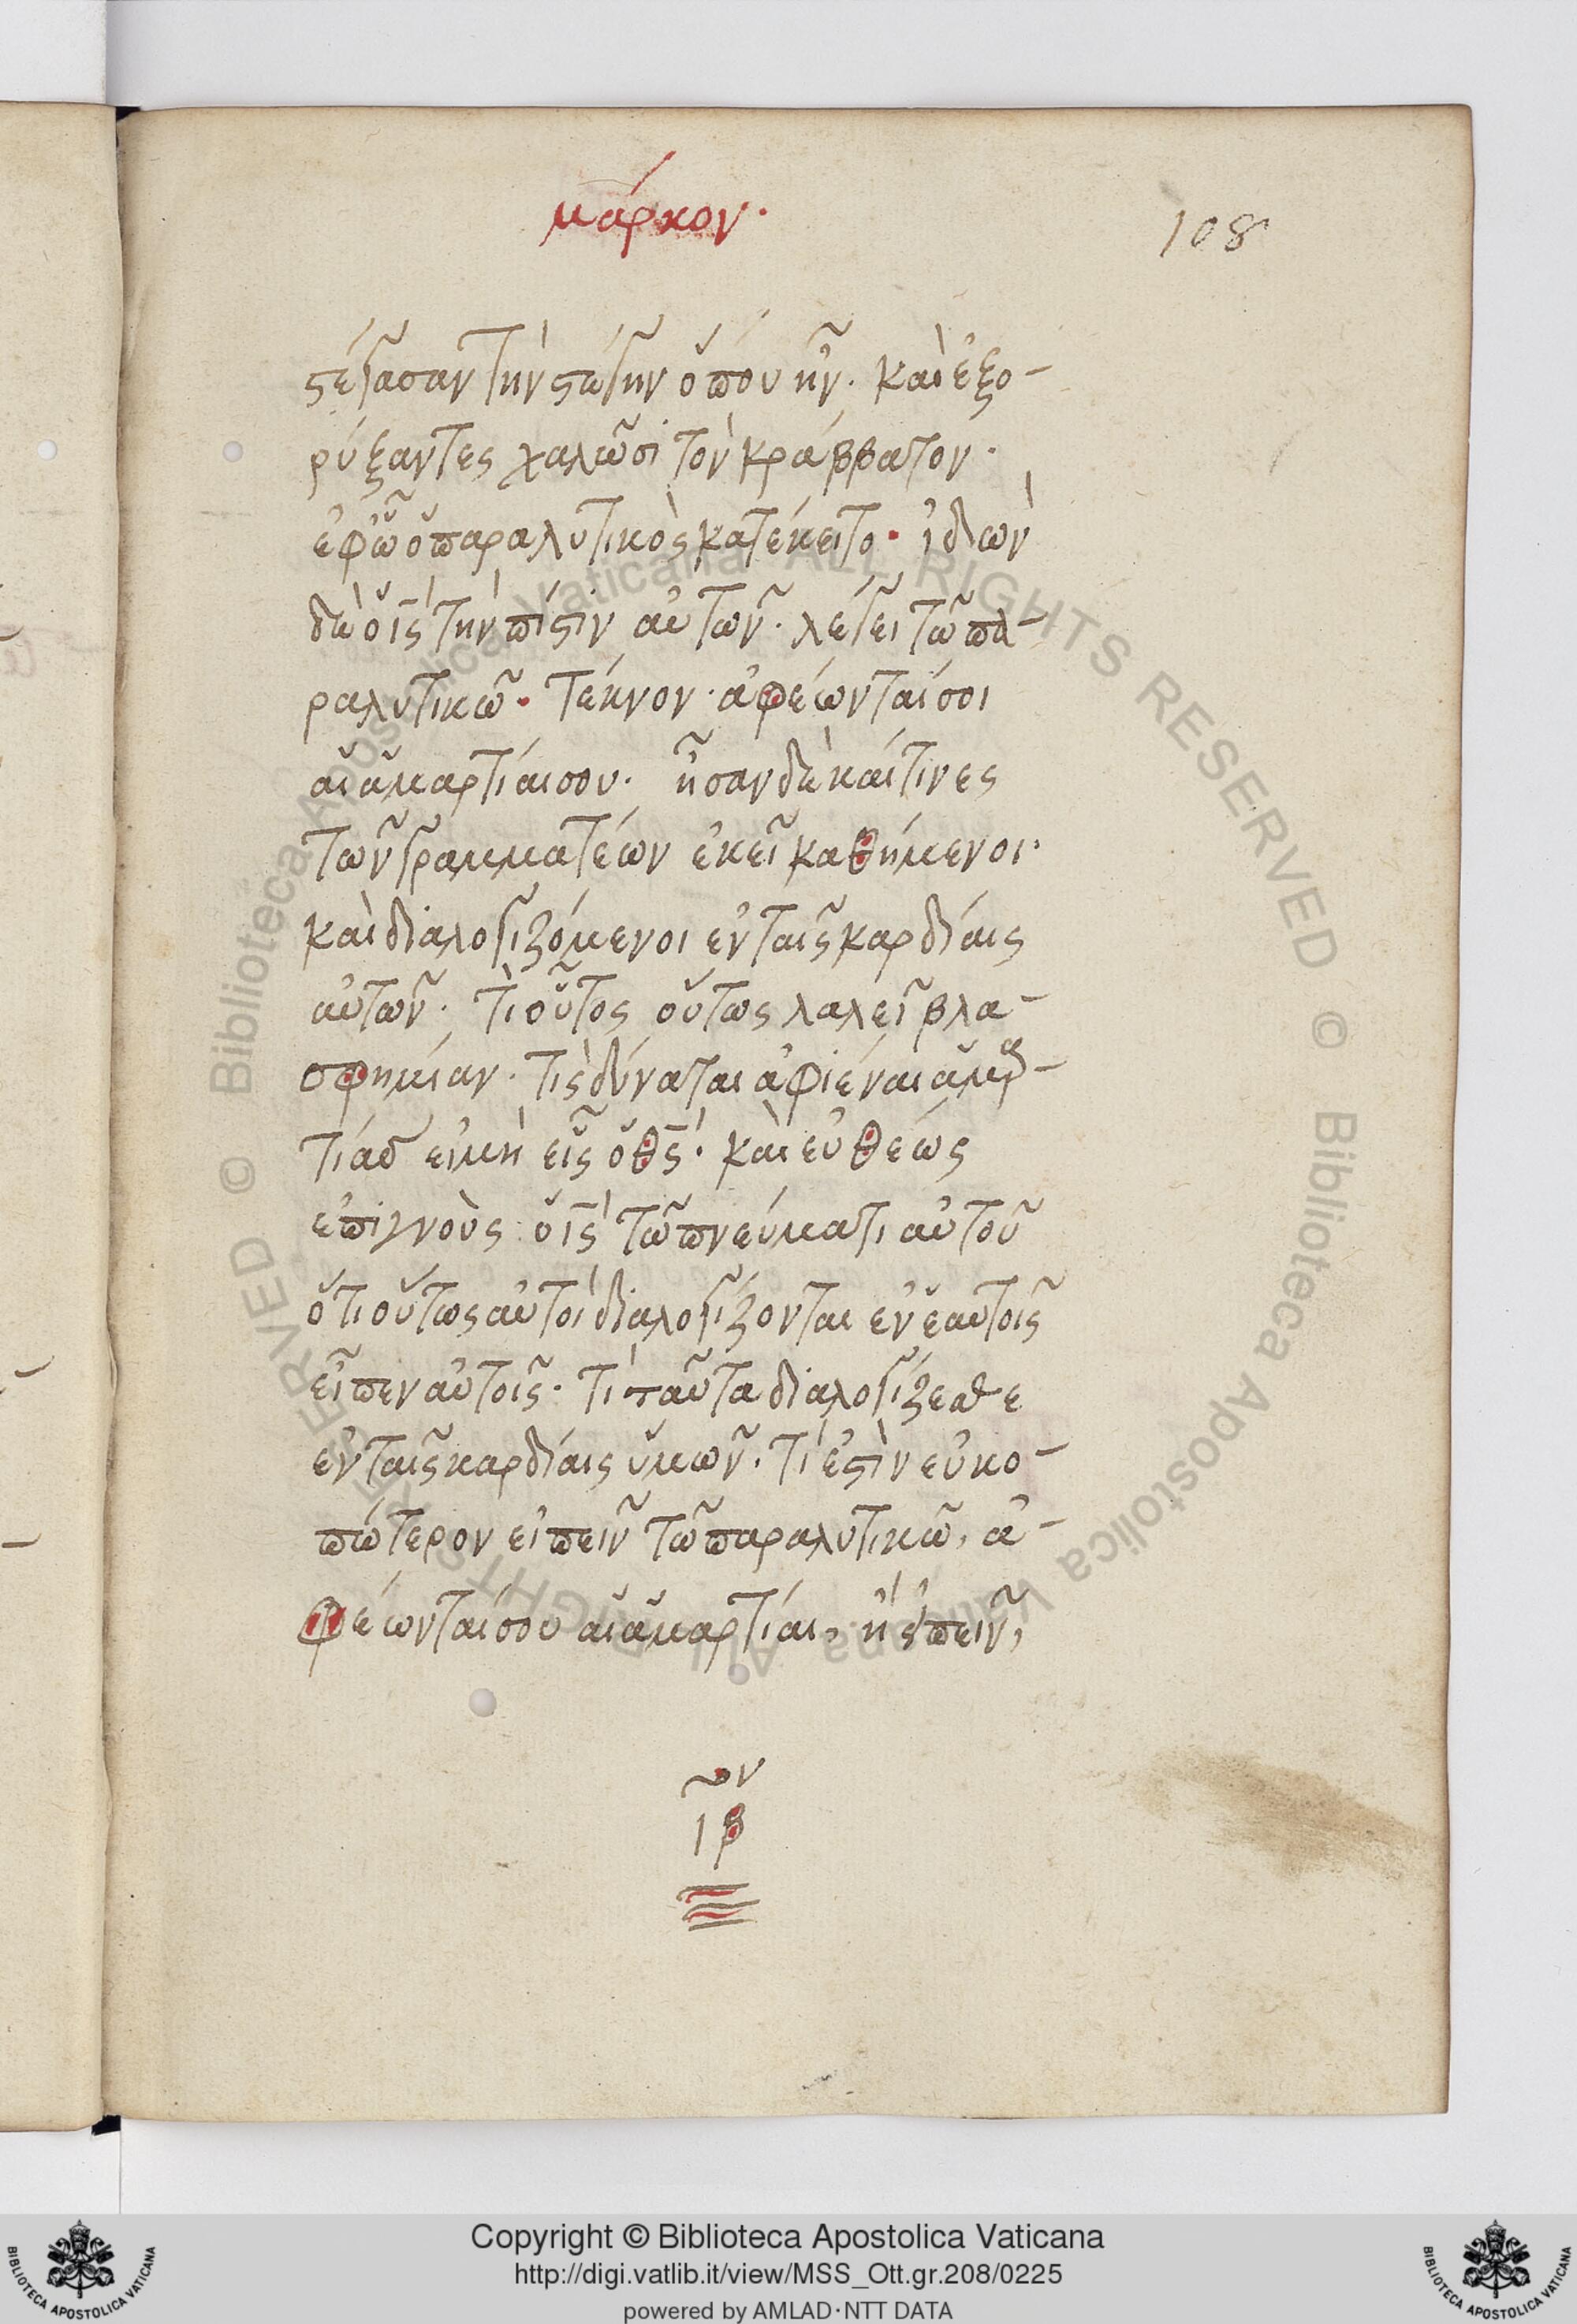 μάρκον.
108
ϛέγασαν τὴν ϛέγην ὅπου ἦν. καὶ ἐξο-
ρύξαντες χαλῶσι τὸν κράββατον.
ἐφ᾽ ᾧ ὁ παραλυτικὸς κατέκειτο. ἰδὼν
δὲ ὁ ι̅ς̅ τὴν πίϛιν αὐτῶν. λέγει τῷ πα-
ραλυτικῷ. τέκνον. ἀφέωνταί σοι
αἱ ἁμαρτίαι σου. ἦσαν δὲ καί τινες
τῶν γραμματέων ἐκεῖ καθήμενοι.
καὶ διαλογιζόμενοι ἐν ταῖς καρδίαις
αὐτῶν. τί οὗτος οὕτως λαλεῖ βλα-
σφημίαν. τίς δύναται ἀφιέναι ἁμαρ-
τίας εἰ μὴ εἷς ὁ θ̅ς̅. καὶ εὐθέως
ἐπιγνοὺς ὁ ι̅ς̅ τῷ πνεύματι αὐτοῦ
ὅτι οὕτως αὐτοὶ διαλογίζονται ἐν ἑαυτοῖς
εἶπεν αὐτοῖς. τί ταῦτα διαλογίζεσθε
ἐν ταῖς καρδίαις ὑμῶν. τί ἐϛὶν εὐκο-
πώτερον εἰπεῖν τῷ παραλυτικῷ, ἀ-
φέωνταί σου αἱ ἁμαρτίαι, ἢ εἰπεῖν,
ιβ
Copyright © Biblioteca Apostolica Vaticana
http://digi.vatlib.it/view/MSS_Ott.gr.208/0225
powered by AMLAD·NTT DATA
BIBLIOTECA APOSTOLICA VATICANA
BIBLIOTECA APOSTOLICA VATICANA
© Biblioteca Apostolica Vaticana ALL RIGHTS RESERVED © Biblioteca Apostolica Vaticana ALL RIGHTS RESERVED